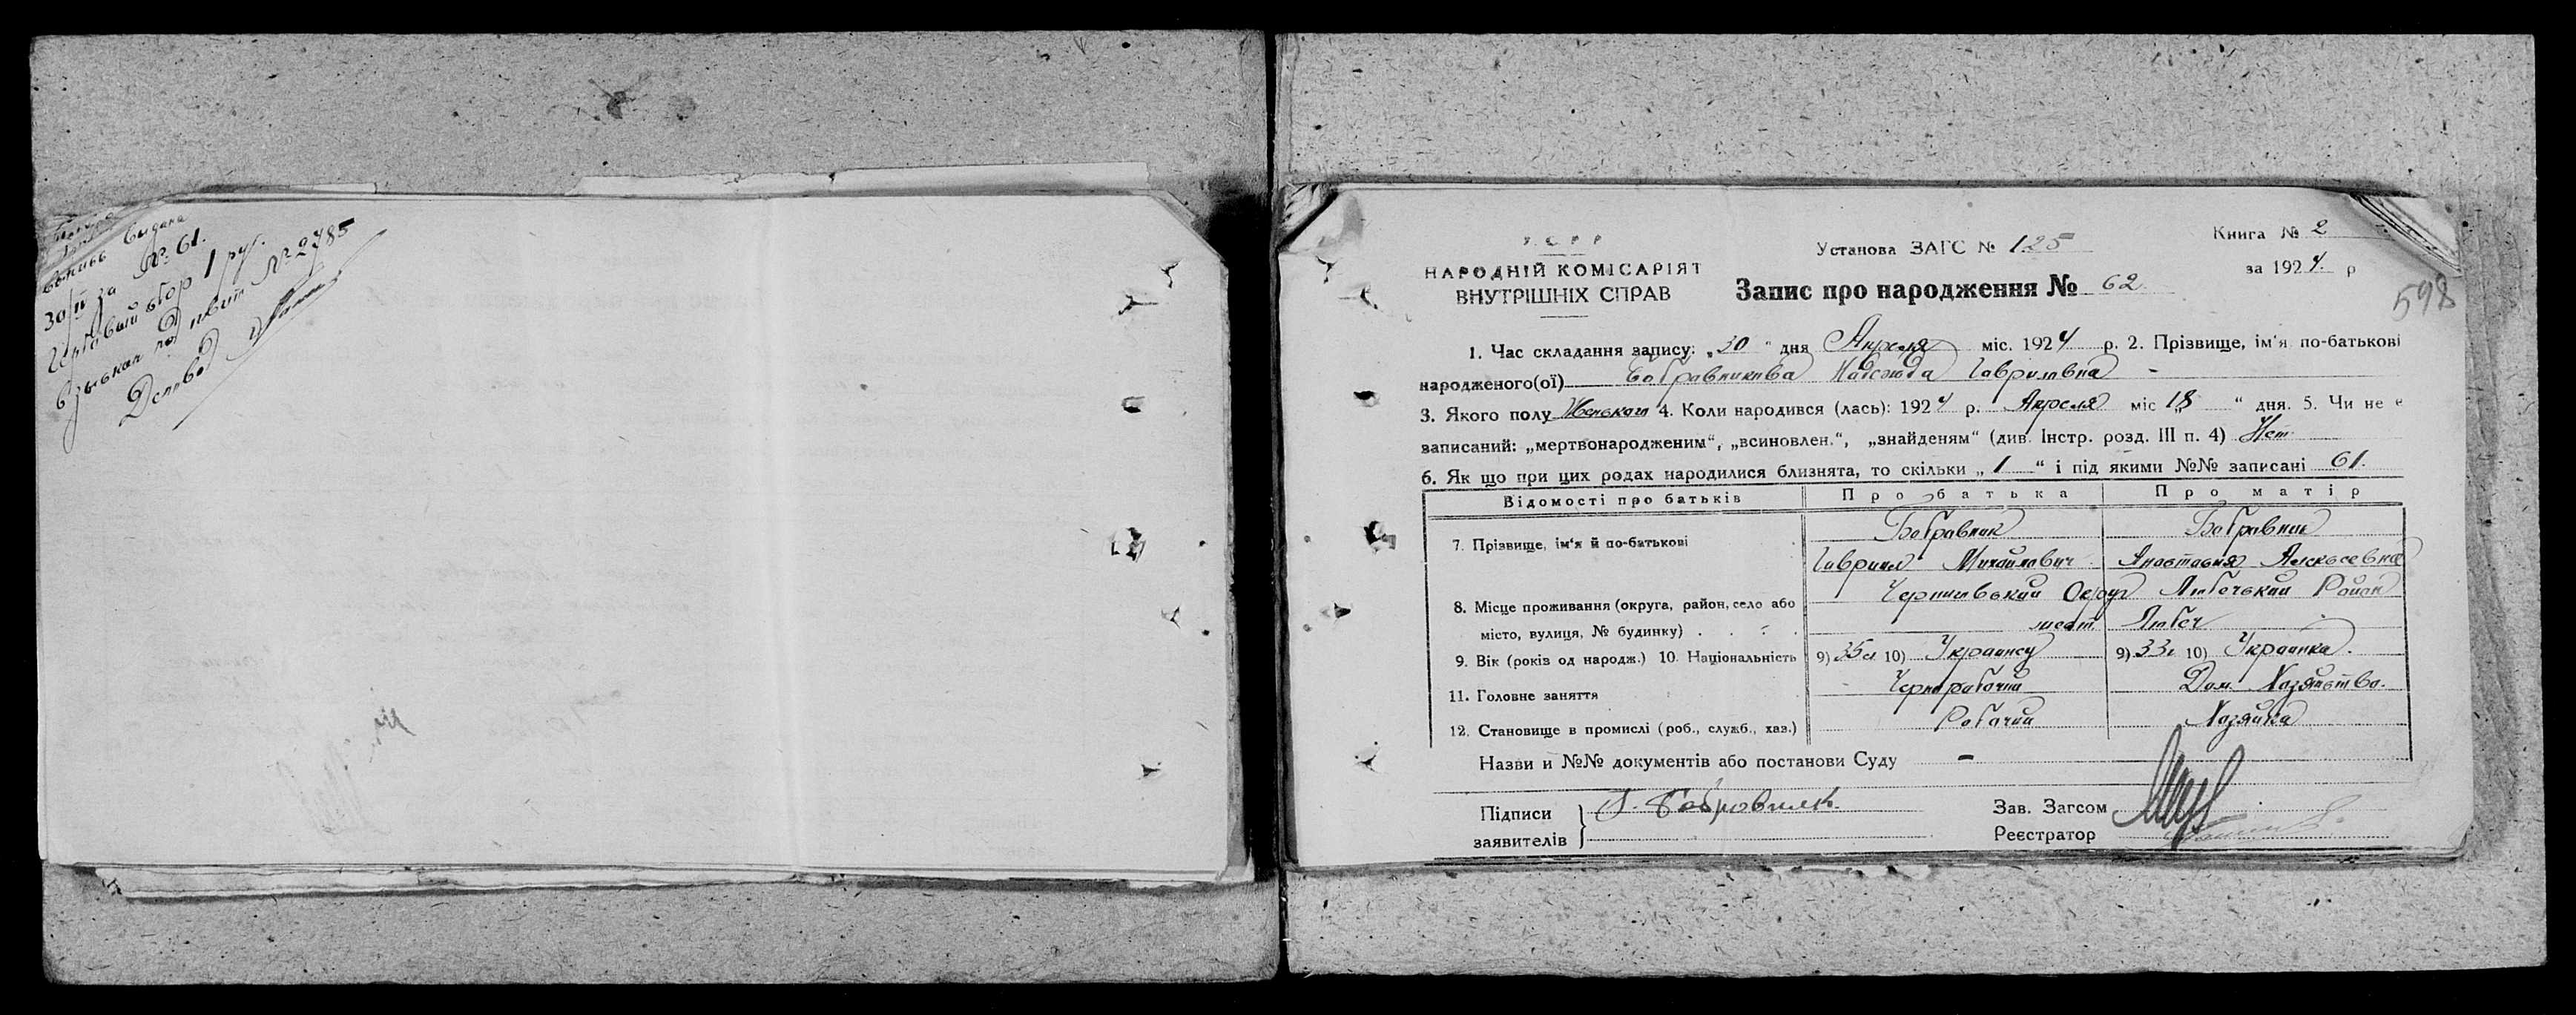 выпись выдана
30/IV за № 61.
Гербовый сбор 1 руб.
взыскан по квит № 2785
Делопр
У. С. Р. Р.
НАРОДНІЙ КОМІСАРІЯТ
ВНУТРІШНІХ СПРАВ
Установа ЗАГС № 125
Запис про народження № 62
Книга № 2
за 1924 р
598
1. Час складання запису: „30“ дня Апреля міс. 1924 р. 2. Прізвище, ім'я, по-батькові
народженого(ої) Бобравникова Надежда Гавриловна -
3. Якого полу Женского 4. Коли народився (лась): 1924 р. Апреля міс „18“ дня. 5. Чи не є
записаний: „мертвонародженим“, „всиновлен.“, „знайденям“ (див. Інстр. розд. III п. 4) Нет
6. Як що при цих родах народилися близнята, то скільки „1“ і під якими №№ записані 61.
Відомості про батьків Про батька Про матір
7. Прізвище, ім'я й по-батькові Бобравник Бобравник
Гавриил Михайлович Анастасия Алексеевна
8. Місце проживання (округа, район, село або Черниговский Округ Любечский Район
місто, вулиця, № будинку) . . . . мест Любеч
9. Вік (років од народж.) 10. Національність 9) 35 л 10) Украинец 9) 33 г 10) Украинка.
11. Головне заняття Чернорабочий Дом. Хозяйство.
12. Становище в промислі (роб., служб., хаз.) Рабочий Хозяйка
Назви и №№ документів або постанови Суду -
Підписи Г. Бобровник. Зав. Загсом
заявителів Реєстратор